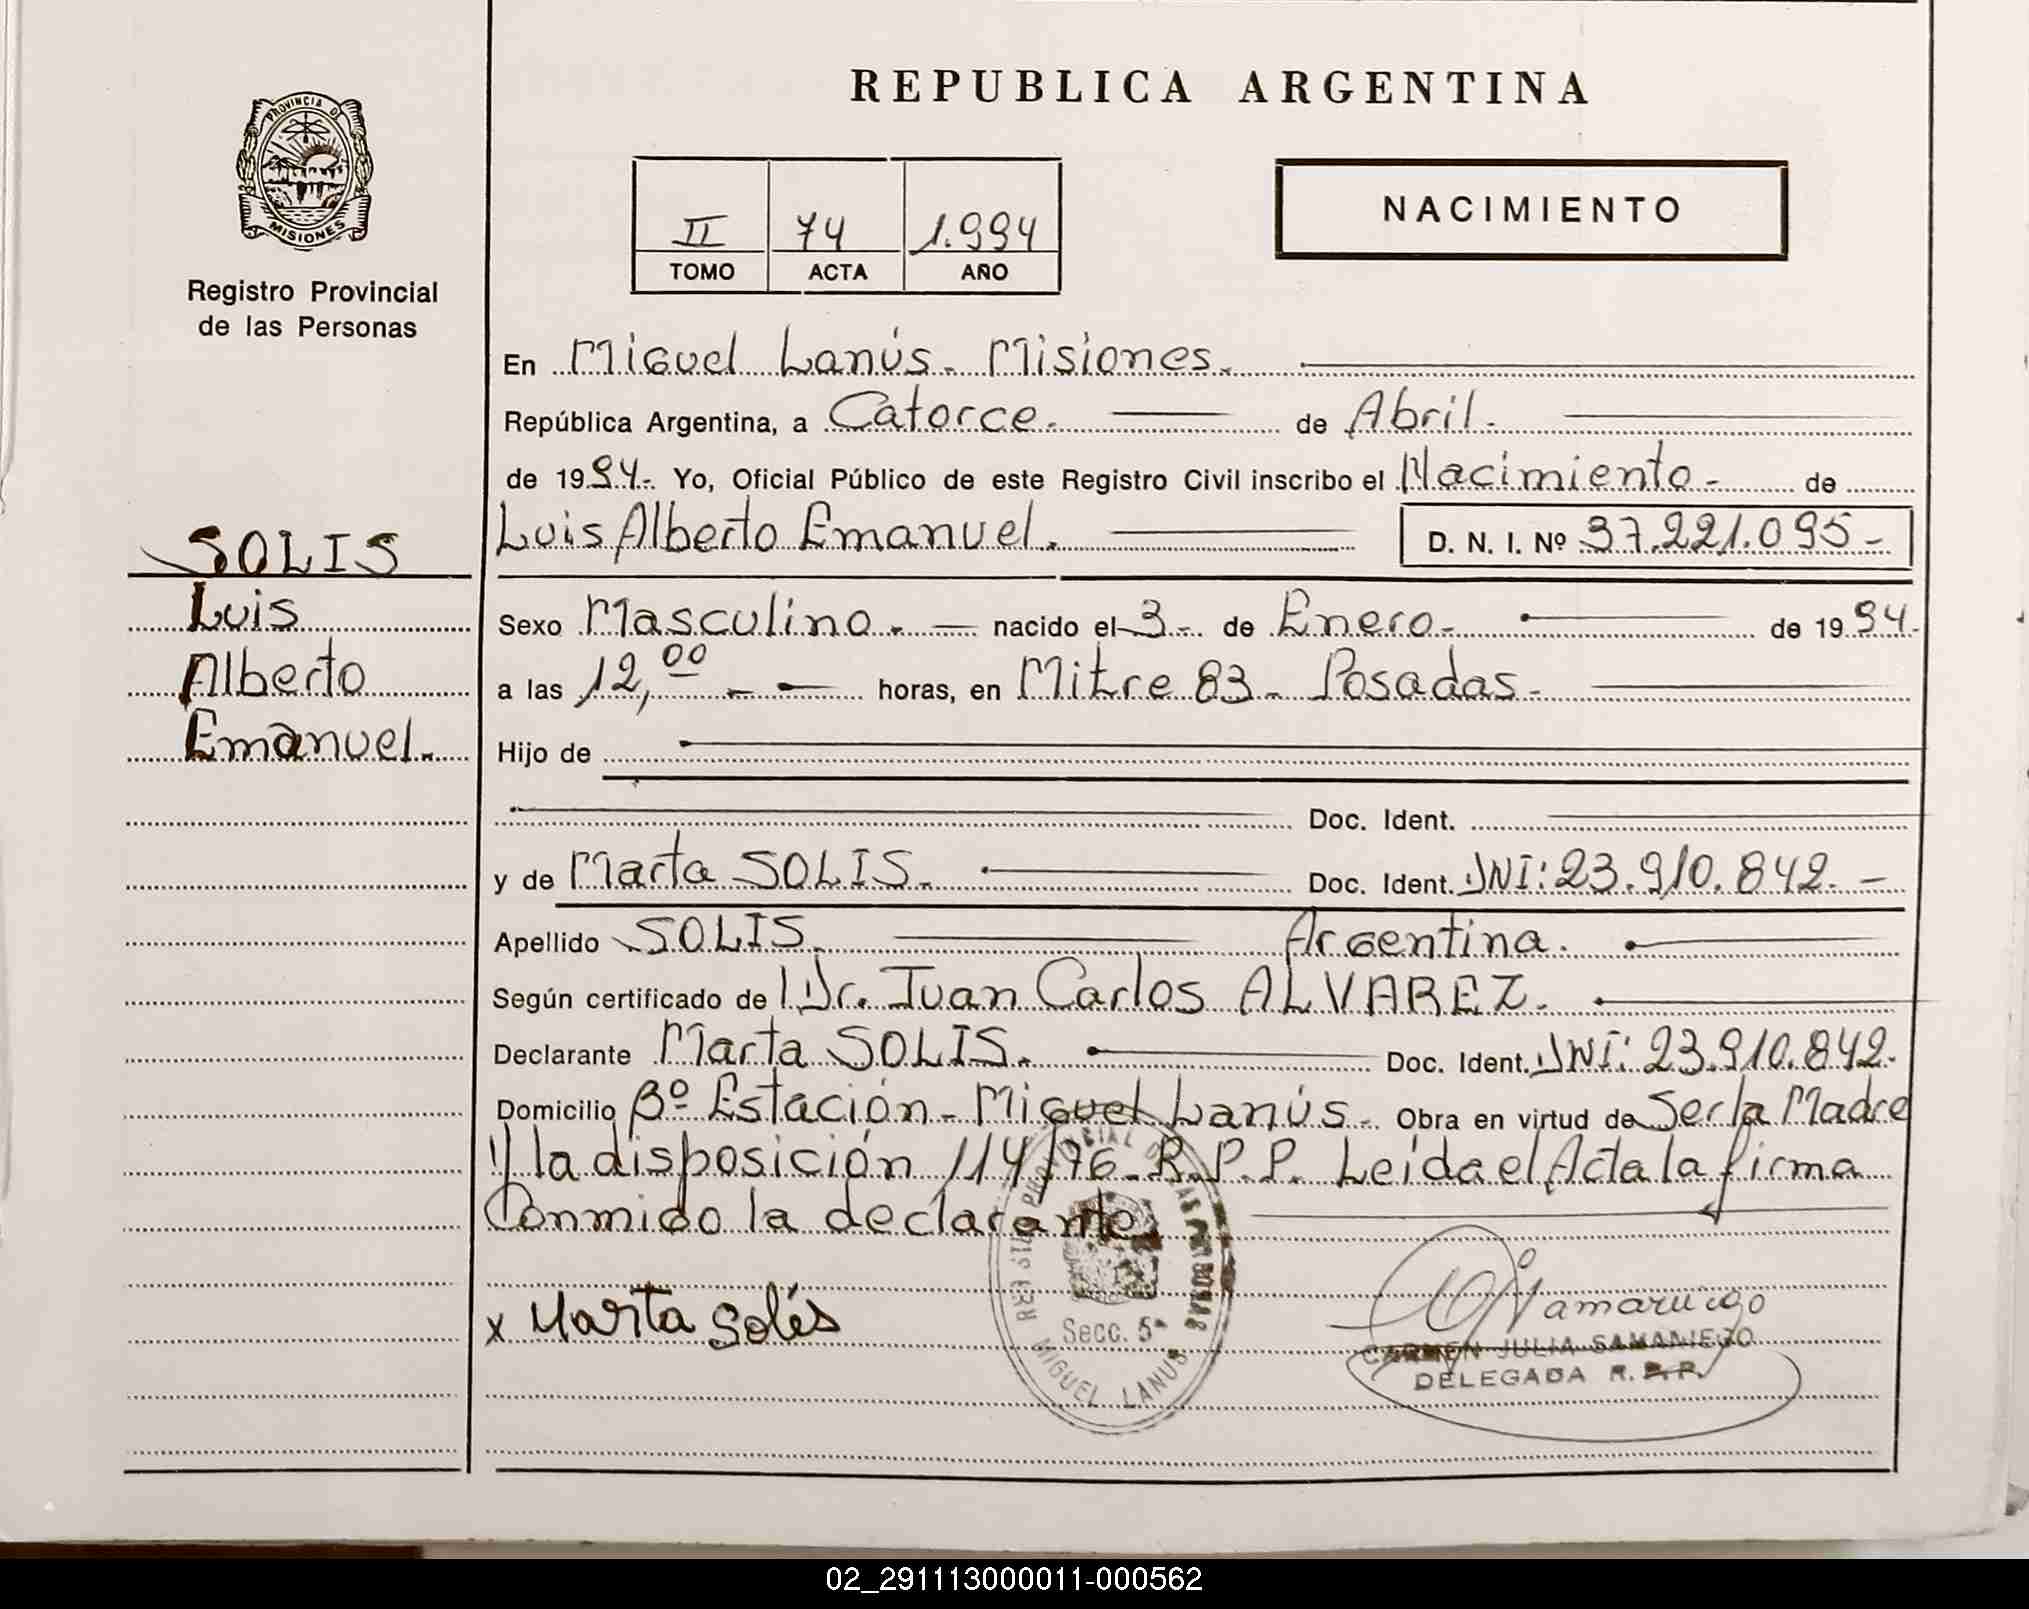 REPUBLICA ARGENTINA
PROVINCIA DE
MISIONES
Registro Provincial
de las Personas
II 74 1.994
TOMO ACTA AÑO
NACIMIENTO
En Miguel Lanús. Misiones.
República Argentina, a Catorce. de Abril.
de 1994. Yo, Oficial Público de este Registro Civil inscribo el Nacimiento - de
Luis Alberto Emanuel. D. N. I. Nº 37.221.095-
SOLIS
Luis
Alberto
Emanuel.
Sexo Masculino. - nacido el 3. de Enero. de 1994.
a las 12,00 horas, en Mitre 83 - Posadas.
Hijo de
Doc. Ident.
y de Marta SOLIS. Doc. Ident. DNI: 23.910.842. -
Apellido SOLIS. Argentina.
Según certificado de Dr. Juan Carlos ALVAREZ.
Declarante Marta SOLIS. Doc. Ident. DNI: 23.910.842.
Domicilio Bº Estación - Miguel Lanús. Obra en virtud de Ser la Madre
y la disposición 114/76 - R.P.P. Leída el Acta la firma
Conmigo la declarante.
x Marta Solís
Secc. 5ª
MIGUEL LANUS
CARMEN JULIA SAMANIEGO
DELEGADA R.P.P.
02_291113000011-000562